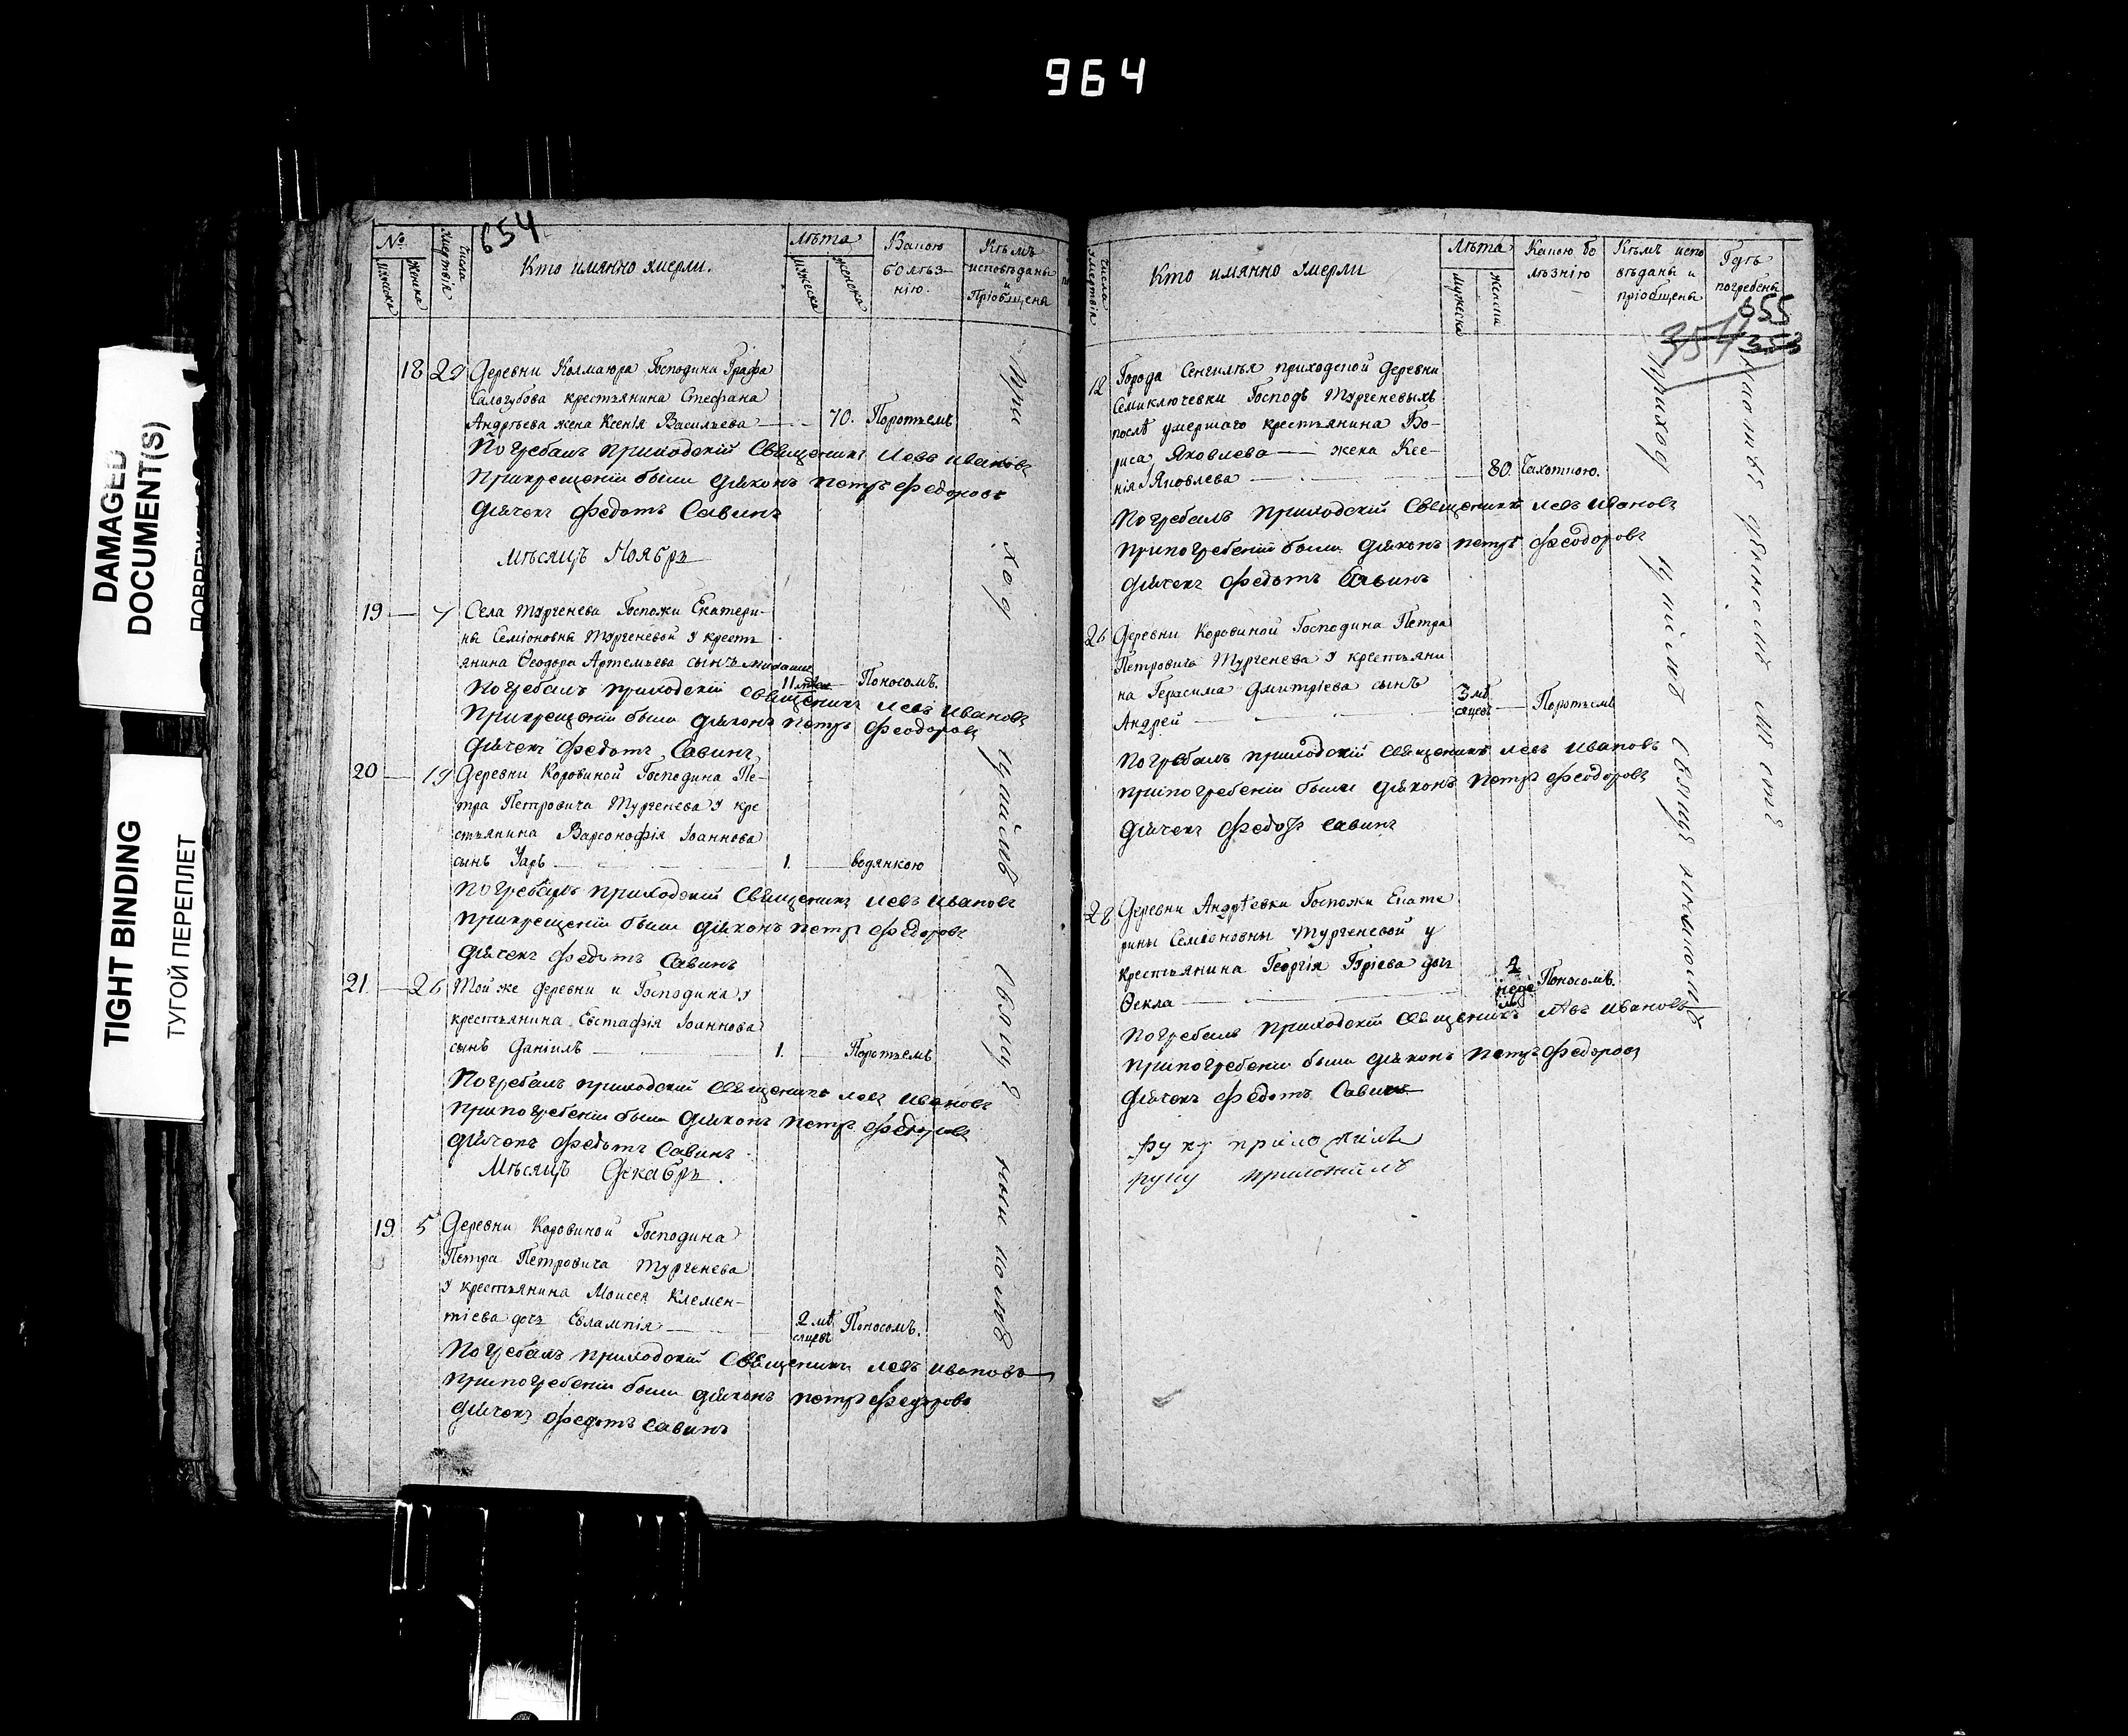 964
DAMAGED
DOCUMENT(S)
TIGHT BINDING
ТУГОЙ ПЕРЕПЛЕТ
654
№
мужеска
женска
числа
умертвія
Кто имянно умерли.
Лѣта
мужеска
женска
Какою
болѣз-
нію.
Кѣмъ
исповѣданы
и
Пріобщены
18 29 Деревни Колмаюра Господина Графа
Салогубова крестьянина Стефана
Андрѣева жена Ксенія Васильева — 70. Поротьемъ
Погребалъ приходскій Священикъ Левъ Ивановъ
Прикрещеніи были Діяконъ Петръ Федоровъ
Діячекъ Федотъ Савинъ
Мѣсяцъ Ноябрь
19 — 7 Села Тургенева Госпожи Екатери-
ны Семіоновны Тургеневой у кресть
янина Ѳеодора Артемьева сынъ
11 Поносомъ.
Погребалъ приходскій Священикъ Левъ Ивановъ
Прикрещеніи были Діяконъ Петръ Феодоровъ
Діячекъ Федотъ Савинъ
20 — 19 Деревни Коровиной Господина Пе-
тра Петровича Тургенева у кре
стьянина Варсонофія Іоаннова
сынъ Уаръ — 1. — водянкою
Погребалъ приходскій Священикъ Левъ Ивановъ
Прикрещеніи были Діяконъ Петръ Федоровъ
Діячекъ Федотъ Савинъ
21. — 26 Той же деревни и Господина у
крестьянина Евстафія Іоаннова
сынъ Даніилъ — 1. — Поротьемъ
Погребалъ приходскій Священикъ Левъ Ивановъ
Припогребеніи были Діяконъ Петръ Федоровъ
Діячекъ Федотъ Савинъ
Мѣсяцъ Декабрь.
19. 5 Деревни Коровиной Господина
Петра Петровича Тургенева
у крестьянина Моисея Клемен-
тіева дочь Евлампія — 2 мѣ Поносомъ.
сяцевъ
Погребалъ приходскій Священикъ Левъ Ивановъ
Припогребеніи были Діяконъ Петръ Федоровъ
Діячекъ Федотъ Савинъ
При ход Священ
числа
умертвія
Кто имянно умерли
Лѣта
мужеска
женска
Какою бо
лѣзнію
Кѣмъ испо
вѣданы и
пріобщены
Гдѣ
погребены
655
354 353
12 Города Сенгилѣя приходской деревни
Семиключевки Господъ Тургеневыхъ
послѣ умершаго крестьянина Бо-
риса Яковлева — жена Ксе-
нія Яковлева — 80. Чахоткою.
Погребалъ приходскій Священикъ Левъ Ивановъ
Припогребеніи были Діяконъ Петръ Феодоровъ
Діячекъ Федотъ Савинъ
26 Деревни Коровиной Господина Петра
Петровича Тургенева у крестьяни
на Герасима Дмитріева сынъ
Андрей — 3 мѣ — Поротьемъ
сяцевъ
Погребалъ приходскій Священикъ Левъ Ивановъ
Припогребеніи были Діяконъ Петръ Феодоровъ
Діячекъ Федотъ Савинъ
28 Деревни Андрѣевки Госпожи Екате
рины Семіоновны Тургеневой у
крестьянина Георгія дочь
Ѳекла — 2 Поносомъ.
неде
ль
Погребалъ приходскій Священикъ Левъ Ивановъ
Припогребеніи были Діяконъ Петръ Федоровъ
Діячекъ Федотъ Савинъ
руку приложилъ
руку приложилъ
Приход Священ